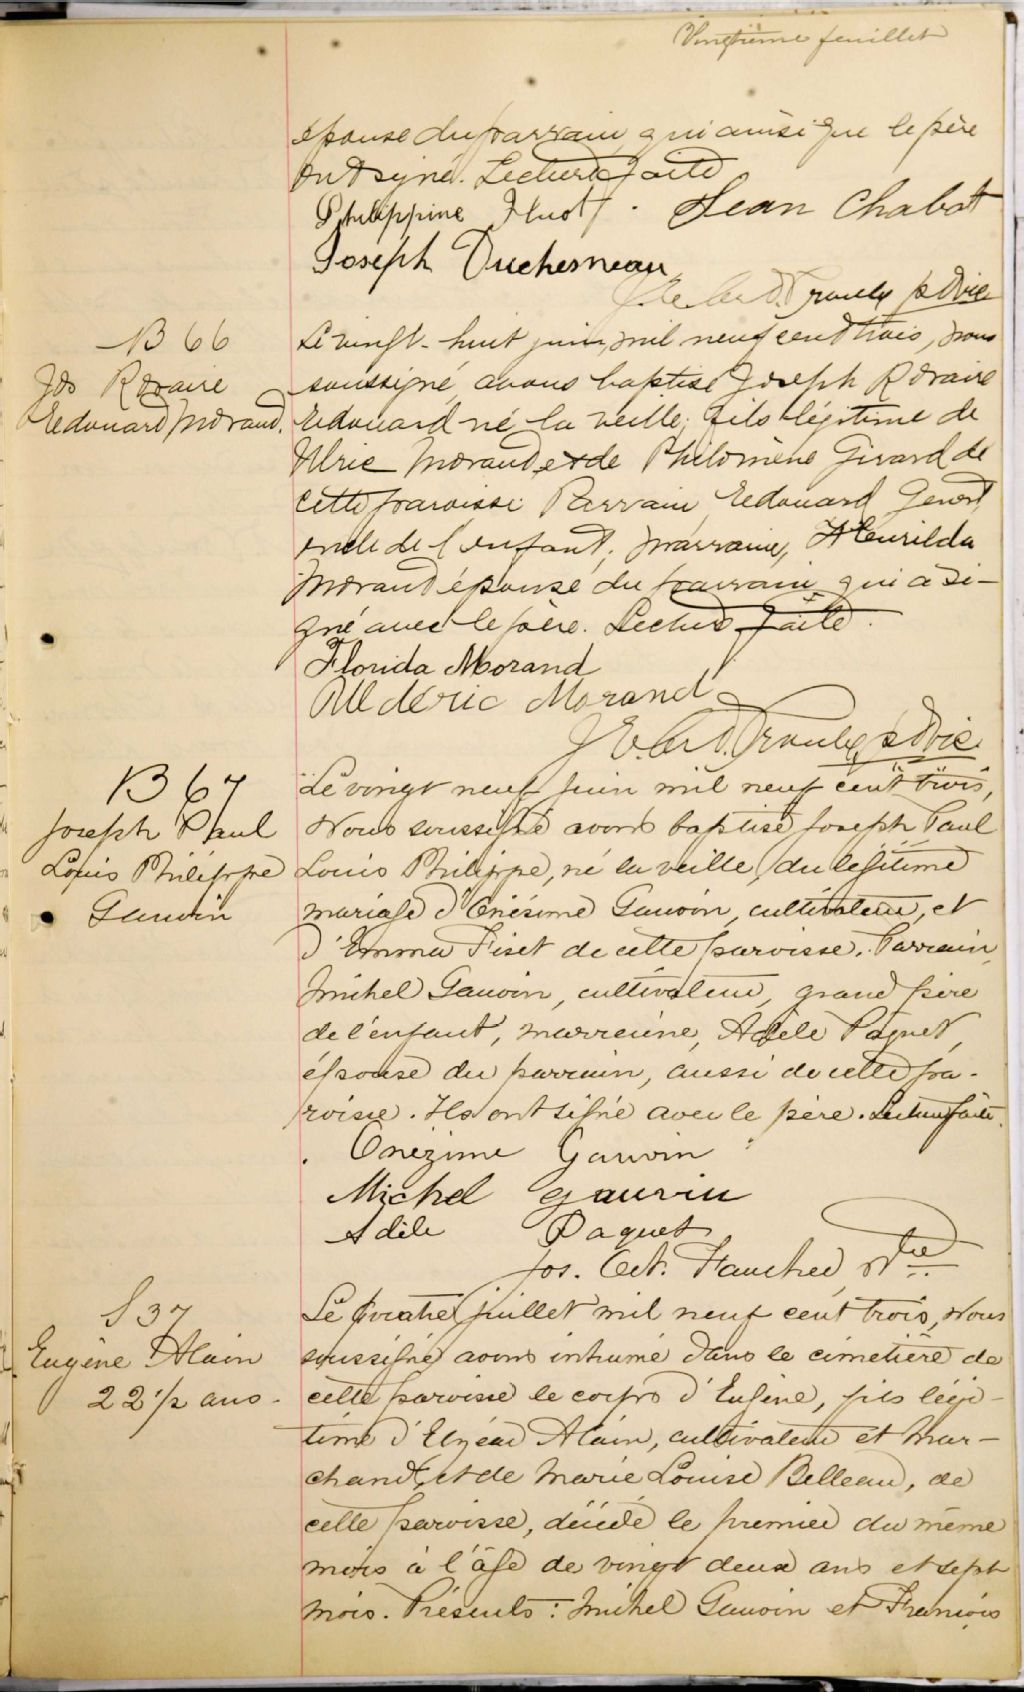 Vingtième feuillet
épouse du parrain, qui ainsi que le père
ont signé. Lecture faite
Philippine Huot. Jean Chabot
Joseph Duchesneau
ptre vic
B 66
Jos Rosaire
Edouard Morand.
Le vingt-huit juin, mil neuf cent trois, nous
soussigné, avons baptisé Joseph Rosaire
Edouard né la veille, fils légitime de
Ulric Morand et de Philomène Girard de
cette paroisse. Parrain, Edouard
oncle de l'enfant; marraine,
Morand épouse du parrain qui a si-
gné avec le père. Lecture faite.
Florida Morand
Morand
ptre vic
B 67
Joseph Paul
Louis Philippe
Gauvin
Le vingt neuf juin mil neuf cent trois,
Nous soussigné avons baptisé Joseph Paul
Louis Philippe, né la veille, du légitime
mariage d'Onésime Gauvin, cultivateur, et
d'Emma Fiset de cette paroisse. Parrain,
Michel Gauvin, cultivateur, grand père
de l'enfant, marraine, Adèle Paquet,
épouse du parrain, aussi de cette pa-
roisse. Ils ont signé avec le père. Lecture faite.
Onezime Gauvin
Michel gauvin
Adèle Paquet
Jos. Oct. Faucher, Ptre
S 37
Eugène Alain
22 1/2 ans.
Le quatre juillet mil neuf cent trois, Nous
soussigné avons inhumé dans le cimetière de
cette paroisse le corps d'Eugène, fils légi-
time d'Elzéar Alain, cultivateur et mar-
chand, et de Marie Louise Belleau, de
cette paroisse, décédé le premier du même
mois à l'âge de vingt deux ans et sept
mois. Présents: Michel Gauvin et François